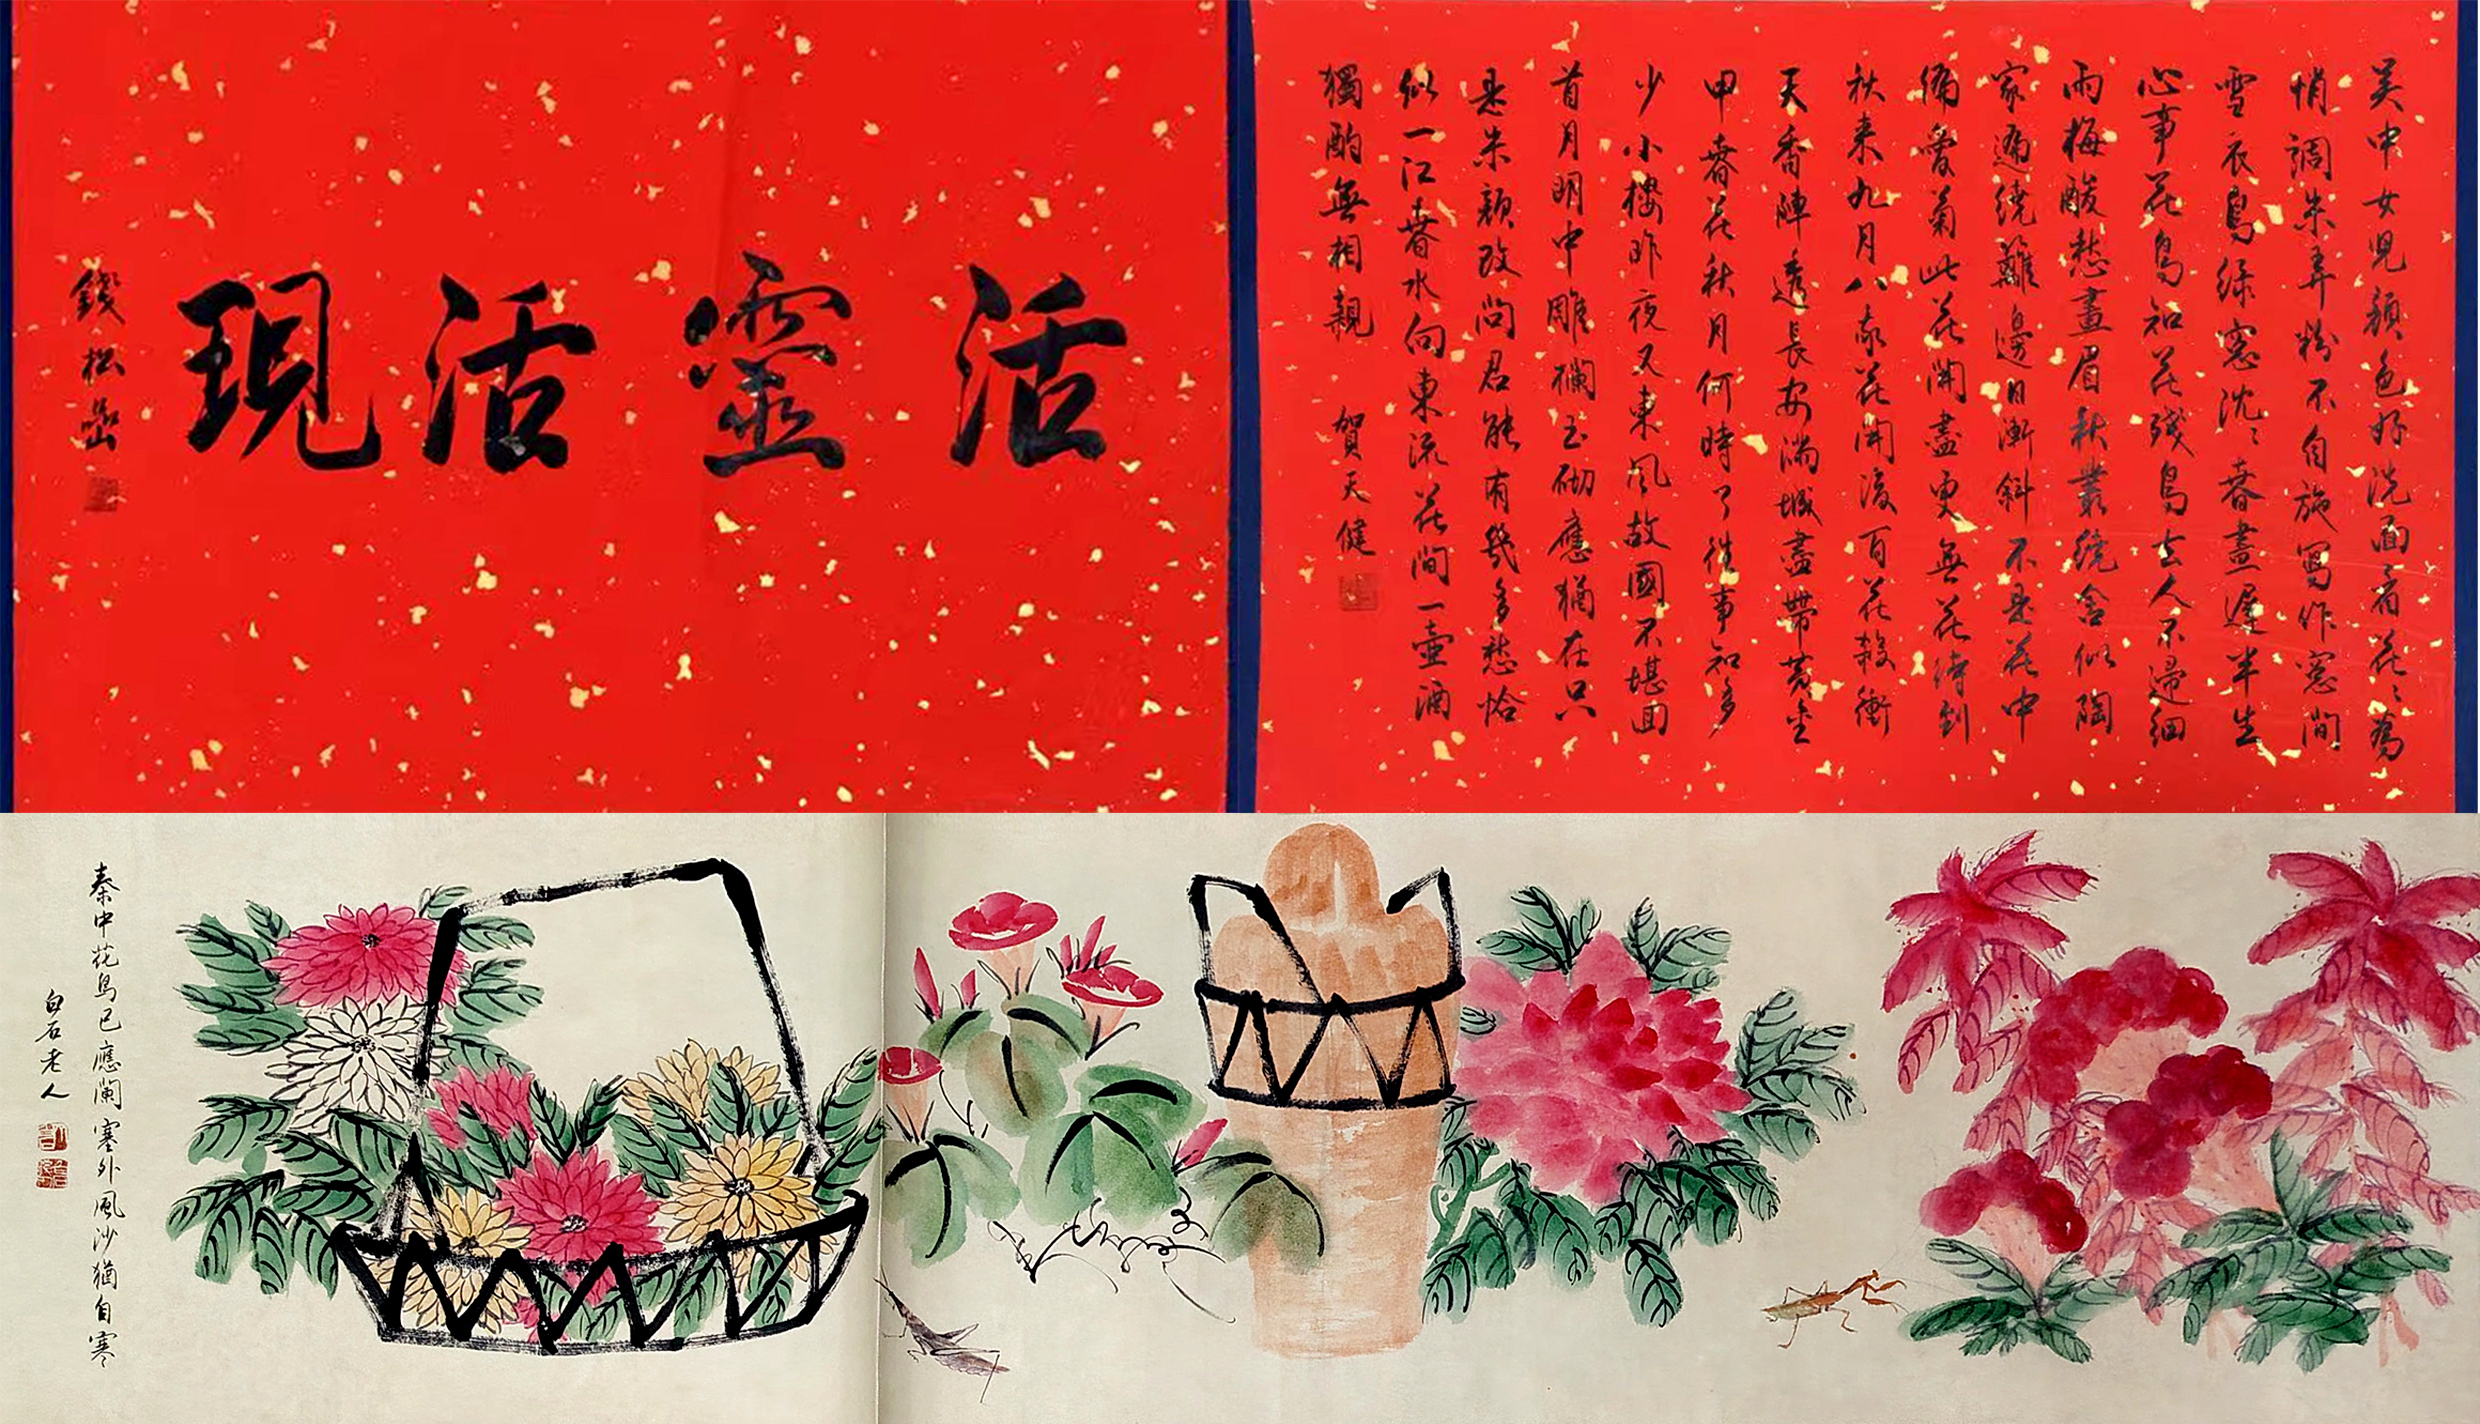 吳中女兒顏色好洗面看花〻為
悄調朱弄粉不自施寫作窓間
雪衣鳥綠窓沈〻春晝遲半生
心事花鳥知花殘鳥去人不歸細
雨梅酸愁畫眉秋叢繞舍似陶
家遍繞籬邊日漸斜不是花中
偏愛菊此花開盡更無花待到
秋来九月八我花開後百花殺衝
天香陣透長安滿城盡帶黄金
甲春花秋月何時了往事知多
少小樓昨夜又東風故國不堪回
首月明中雕欄玉砌應猶在只
是朱顏改問君能有幾多愁恰
似一江春水向東流花間一壺酒
獨酌無相親 賀天健
活靈活現
錢松嵒
秦中花鳥已應闌塞外風沙猶自寒
白石老人